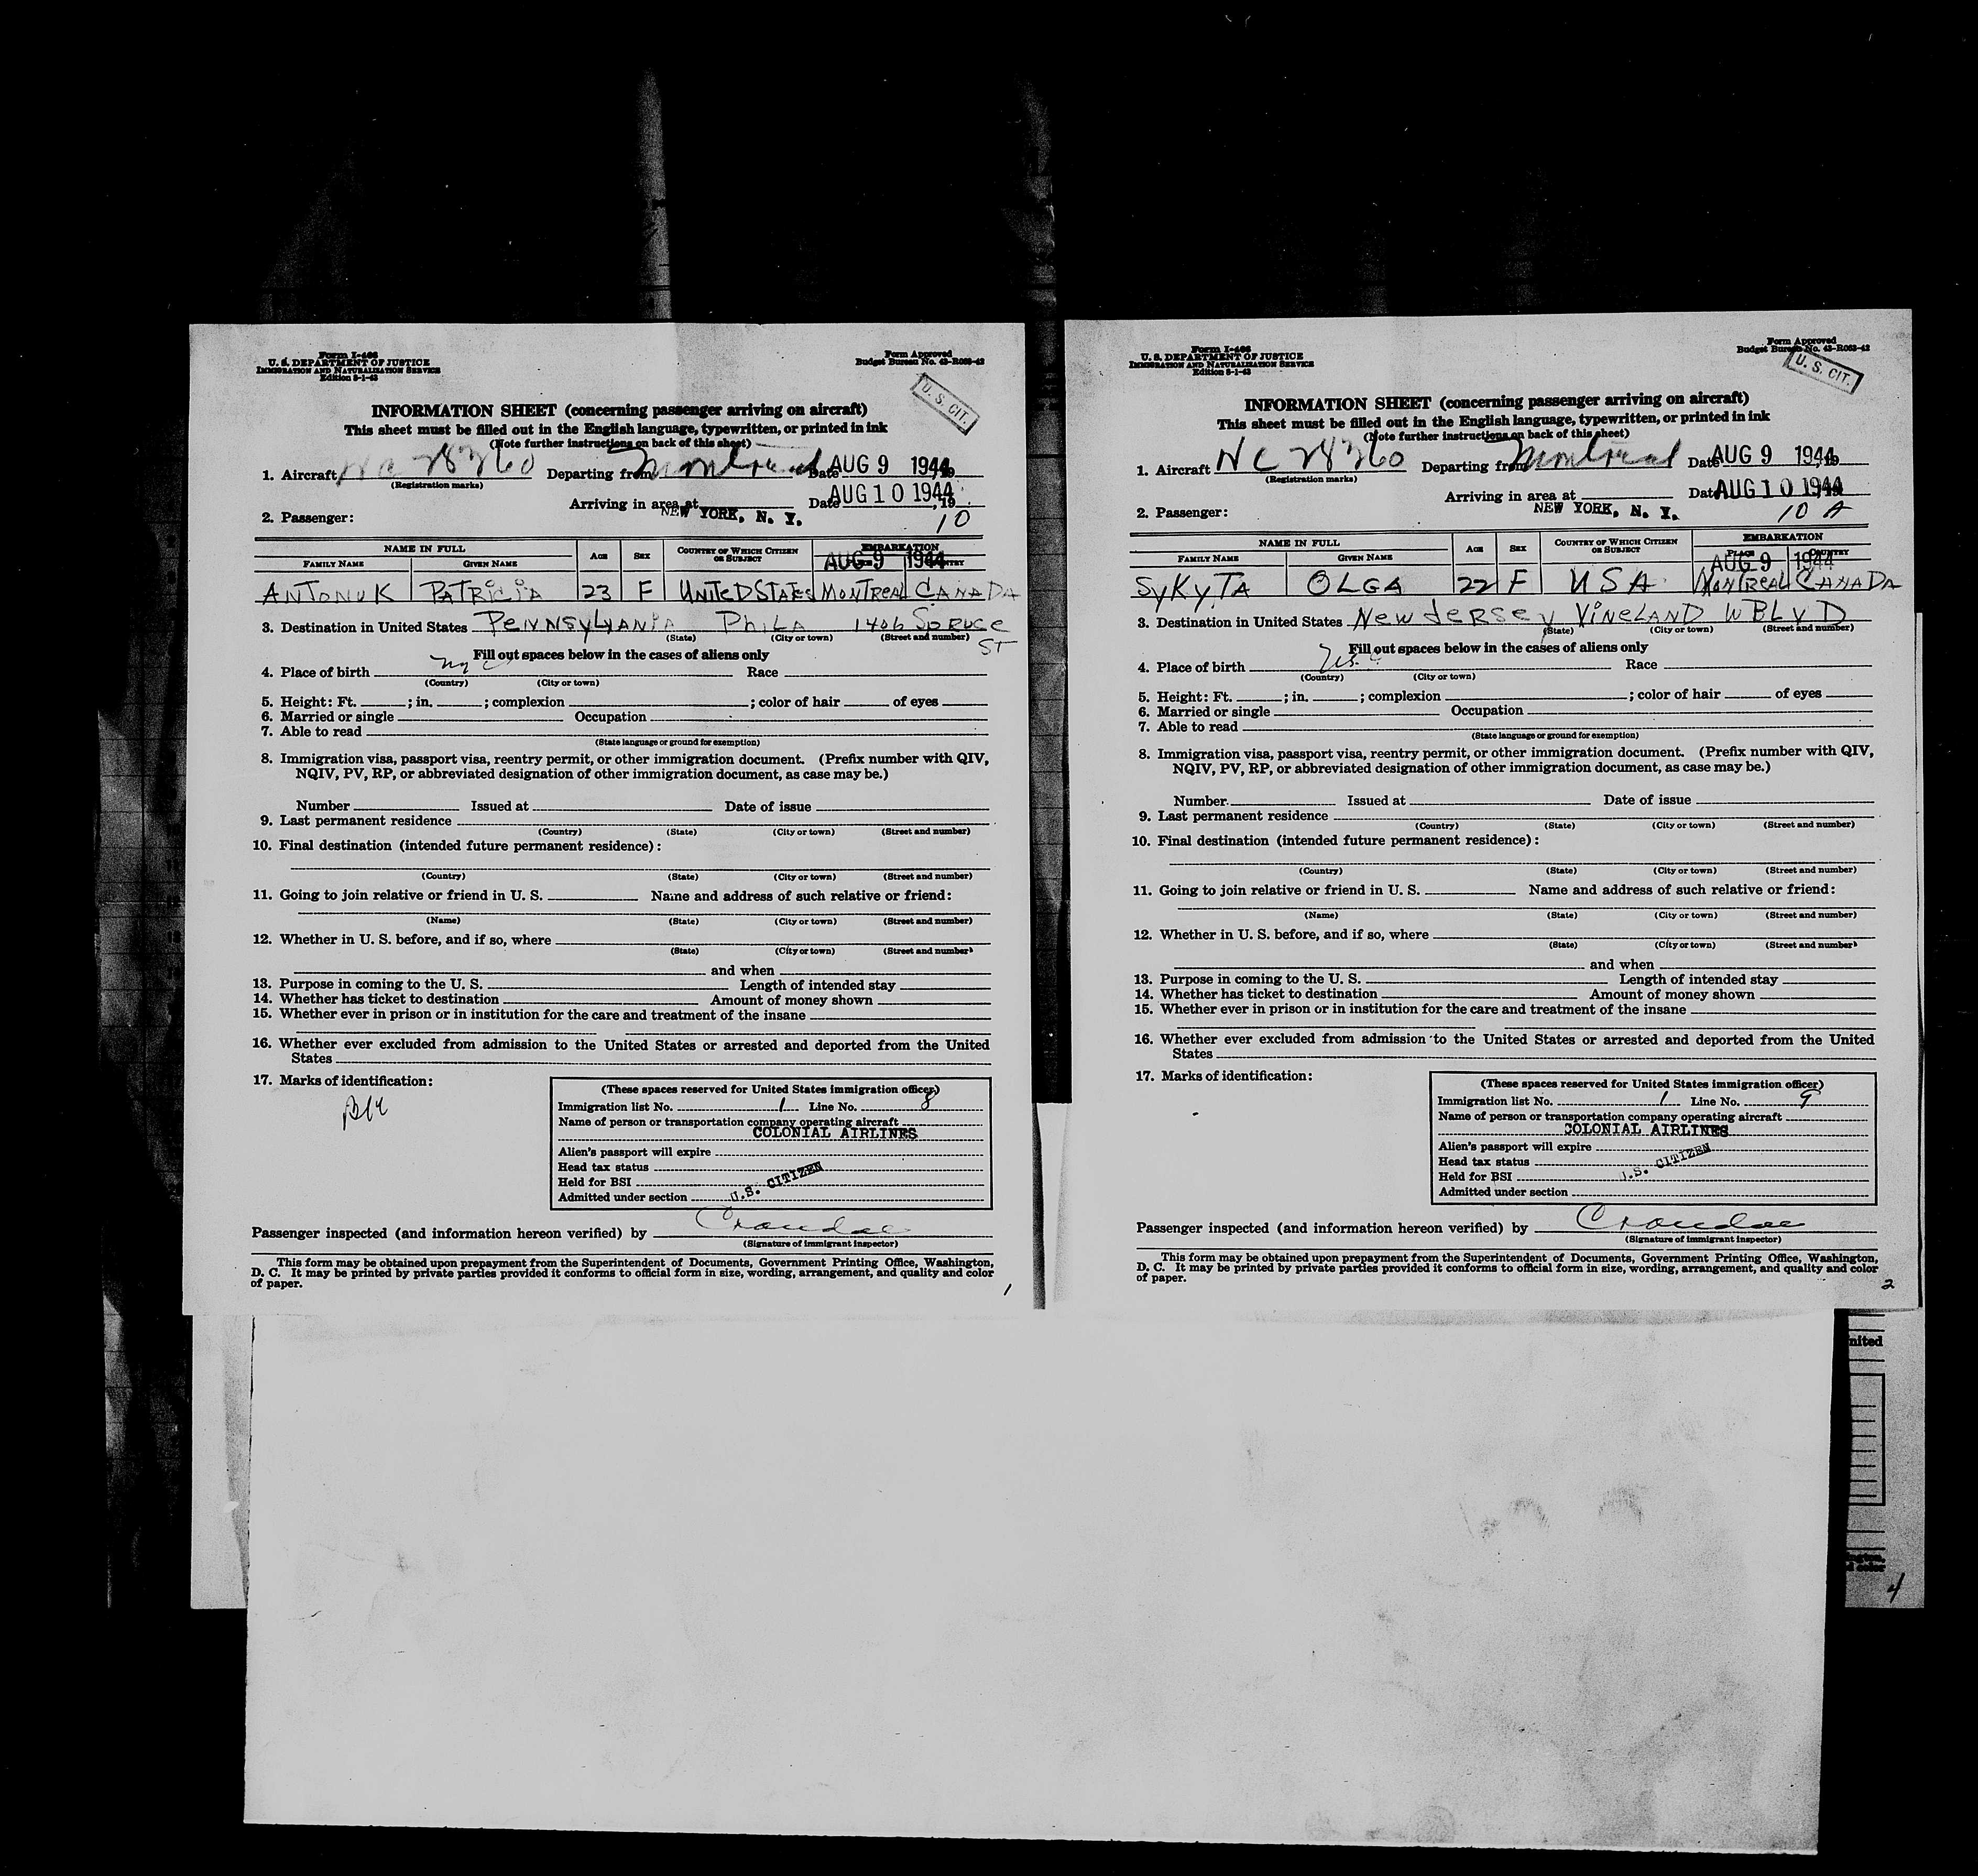 Form I-466
U. S. DEPARTMENT OF JUSTICE
IMMIGRATION AND NATURALIZATION SERVICE
Edition 5-1-43
Form Approved
Budget Bureau No. 43-R063-42
U. S. CIT.
INFORMATION SHEET (concerning passenger arriving on aircraft)
This sheet must be filled out in the English language, typewritten, or printed in ink
(Note further instructions on back of this sheet)
1. Aircraft NC 28360 Departing from Montreal Date AUG 9 1944, 19
(Registration marks)
Arriving in area at NEW YORK, N. Y. Date AUG 10 1944, 19
2. Passenger: 10
NAME IN FULL AGE SEX COUNTRY OF WHICH CITIZEN OR SUBJECT EMBARKATION
FAMILY NAME GIVEN NAME AUG 9 1944 COUNTRY
ANTONUK PATRICIA 23 F UNITED STATES MONTREAL CANADA
3. Destination in United States PENNSYLVANIA PHILA 1406 SPRUCE ST
(State) (City or town) (Street and number)
Fill out spaces below in the cases of aliens only
4. Place of birth Race
(Country) (City or town)
5. Height: Ft. ; in. ; complexion ; color of hair of eyes
6. Married or single Occupation
7. Able to read
(State language or ground for exemption)
8. Immigration visa, passport visa, reentry permit, or other immigration document. (Prefix number with QIV,
NQIV, PV, RP, or abbreviated designation of other immigration document, as case may be.)
Number Issued at Date of issue
9. Last permanent residence
(Country) (State) (City or town) (Street and number)
10. Final destination (intended future permanent residence):
(Country) (State) (City or town) (Street and number)
11. Going to join relative or friend in U. S. Name and address of such relative or friend:
(Name) (State) (City or town) (Street and number)
12. Whether in U. S. before, and if so, where
(State) (City or town) (Street and number)
and when
13. Purpose in coming to the U. S. Length of intended stay
14. Whether has ticket to destination Amount of money shown
15. Whether ever in prison or in institution for the care and treatment of the insane
16. Whether ever excluded from admission to the United States or arrested and deported from the United
States
17. Marks of identification:
(These spaces reserved for United States immigration officer)
Immigration list No. 1 Line No. 8
Name of person or transportation company operating aircraft
COLONIAL AIRLINES
Alien's passport will expire
Head tax status
Held for BSI
Admitted under section
U.S. CITIZEN
Passenger inspected (and information hereon verified) by
(Signature of immigrant inspector)
This form may be obtained upon prepayment from the Superintendent of Documents, Government Printing Office, Washington,
D. C. It may be printed by private parties provided it conforms to official form in size, wording, arrangement, and quality and color
of paper.
1
Form I-466
U. S. DEPARTMENT OF JUSTICE
IMMIGRATION AND NATURALIZATION SERVICE
Edition 5-1-43
Form Approved
Budget Bureau No. 43-R063-42
U. S. CIT.
INFORMATION SHEET (concerning passenger arriving on aircraft)
This sheet must be filled out in the English language, typewritten, or printed in ink
(Note further instructions on back of this sheet)
1. Aircraft NC 28360 Departing from Montreal Date AUG 9 1944, 19
(Registration marks)
Arriving in area at NEW YORK, N. Y. Date AUG 10 1944
2. Passenger: 10 A
NAME IN FULL AGE SEX COUNTRY OF WHICH CITIZEN OR SUBJECT EMBARKATION
FAMILY NAME GIVEN NAME PLACE COUNTRY
AUG 9 1944
SYKYTA OLGA 22 F USA MONTREAL CANADA
3. Destination in United States NEW JERSEY VINELAND W BLVD
(State) (City or town) (Street and number)
Fill out spaces below in the cases of aliens only
4. Place of birth Race
(Country) (City or town)
5. Height: Ft. ; in. ; complexion ; color of hair of eyes
6. Married or single Occupation
7. Able to read
(State language or ground for exemption)
8. Immigration visa, passport visa, reentry permit, or other immigration document. (Prefix number with QIV,
NQIV, PV, RP, or abbreviated designation of other immigration document, as case may be.)
Number Issued at Date of issue
9. Last permanent residence
(Country) (State) (City or town) (Street and number)
10. Final destination (intended future permanent residence):
(Country) (State) (City or town) (Street and number)
11. Going to join relative or friend in U. S. Name and address of such relative or friend:
(Name) (State) (City or town) (Street and number)
12. Whether in U. S. before, and if so, where
(State) (City or town) (Street and number)
and when
13. Purpose in coming to the U. S. Length of intended stay
14. Whether has ticket to destination Amount of money shown
15. Whether ever in prison or in institution for the care and treatment of the insane
16. Whether ever excluded from admission to the United States or arrested and deported from the United
States
17. Marks of identification:
(These spaces reserved for United States immigration officer)
Immigration list No. 1 Line No. 9
Name of person or transportation company operating aircraft
COLONIAL AIRLINES
Alien's passport will expire
Head tax status
Held for BSI
U.S. CITIZEN
Admitted under section
Passenger inspected (and information hereon verified) by
(Signature of immigrant inspector)
This form may be obtained upon prepayment from the Superintendent of Documents, Government Printing Office, Washington,
D. C. It may be printed by private parties provided it conforms to official form in size, wording, arrangement, and quality and color
of paper.
2
nited
4